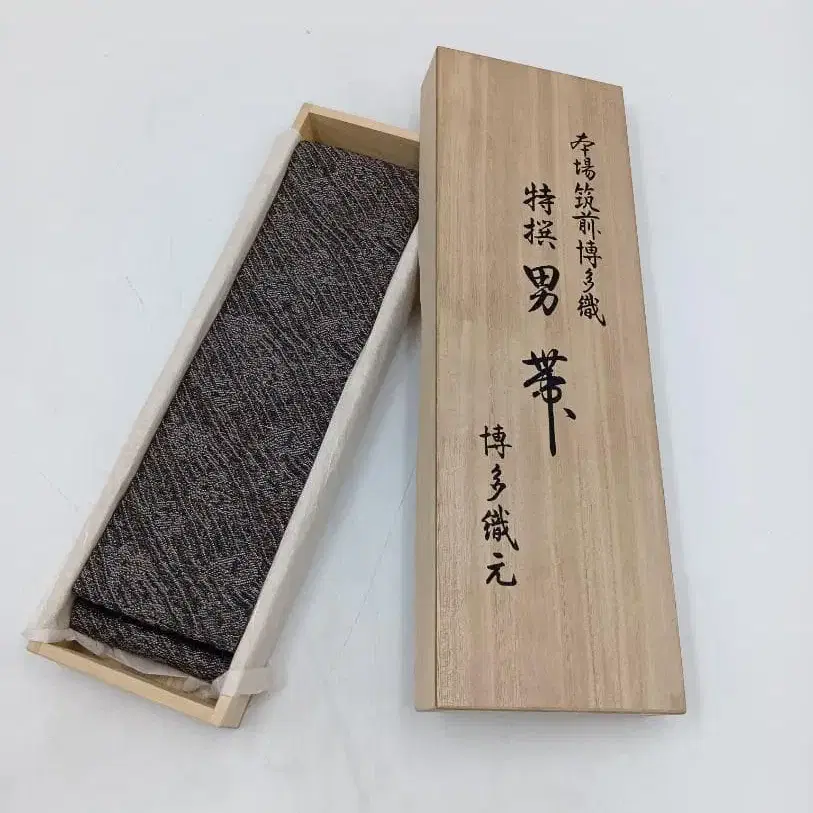 本場筑前博多織
特撰男帯
博多織元